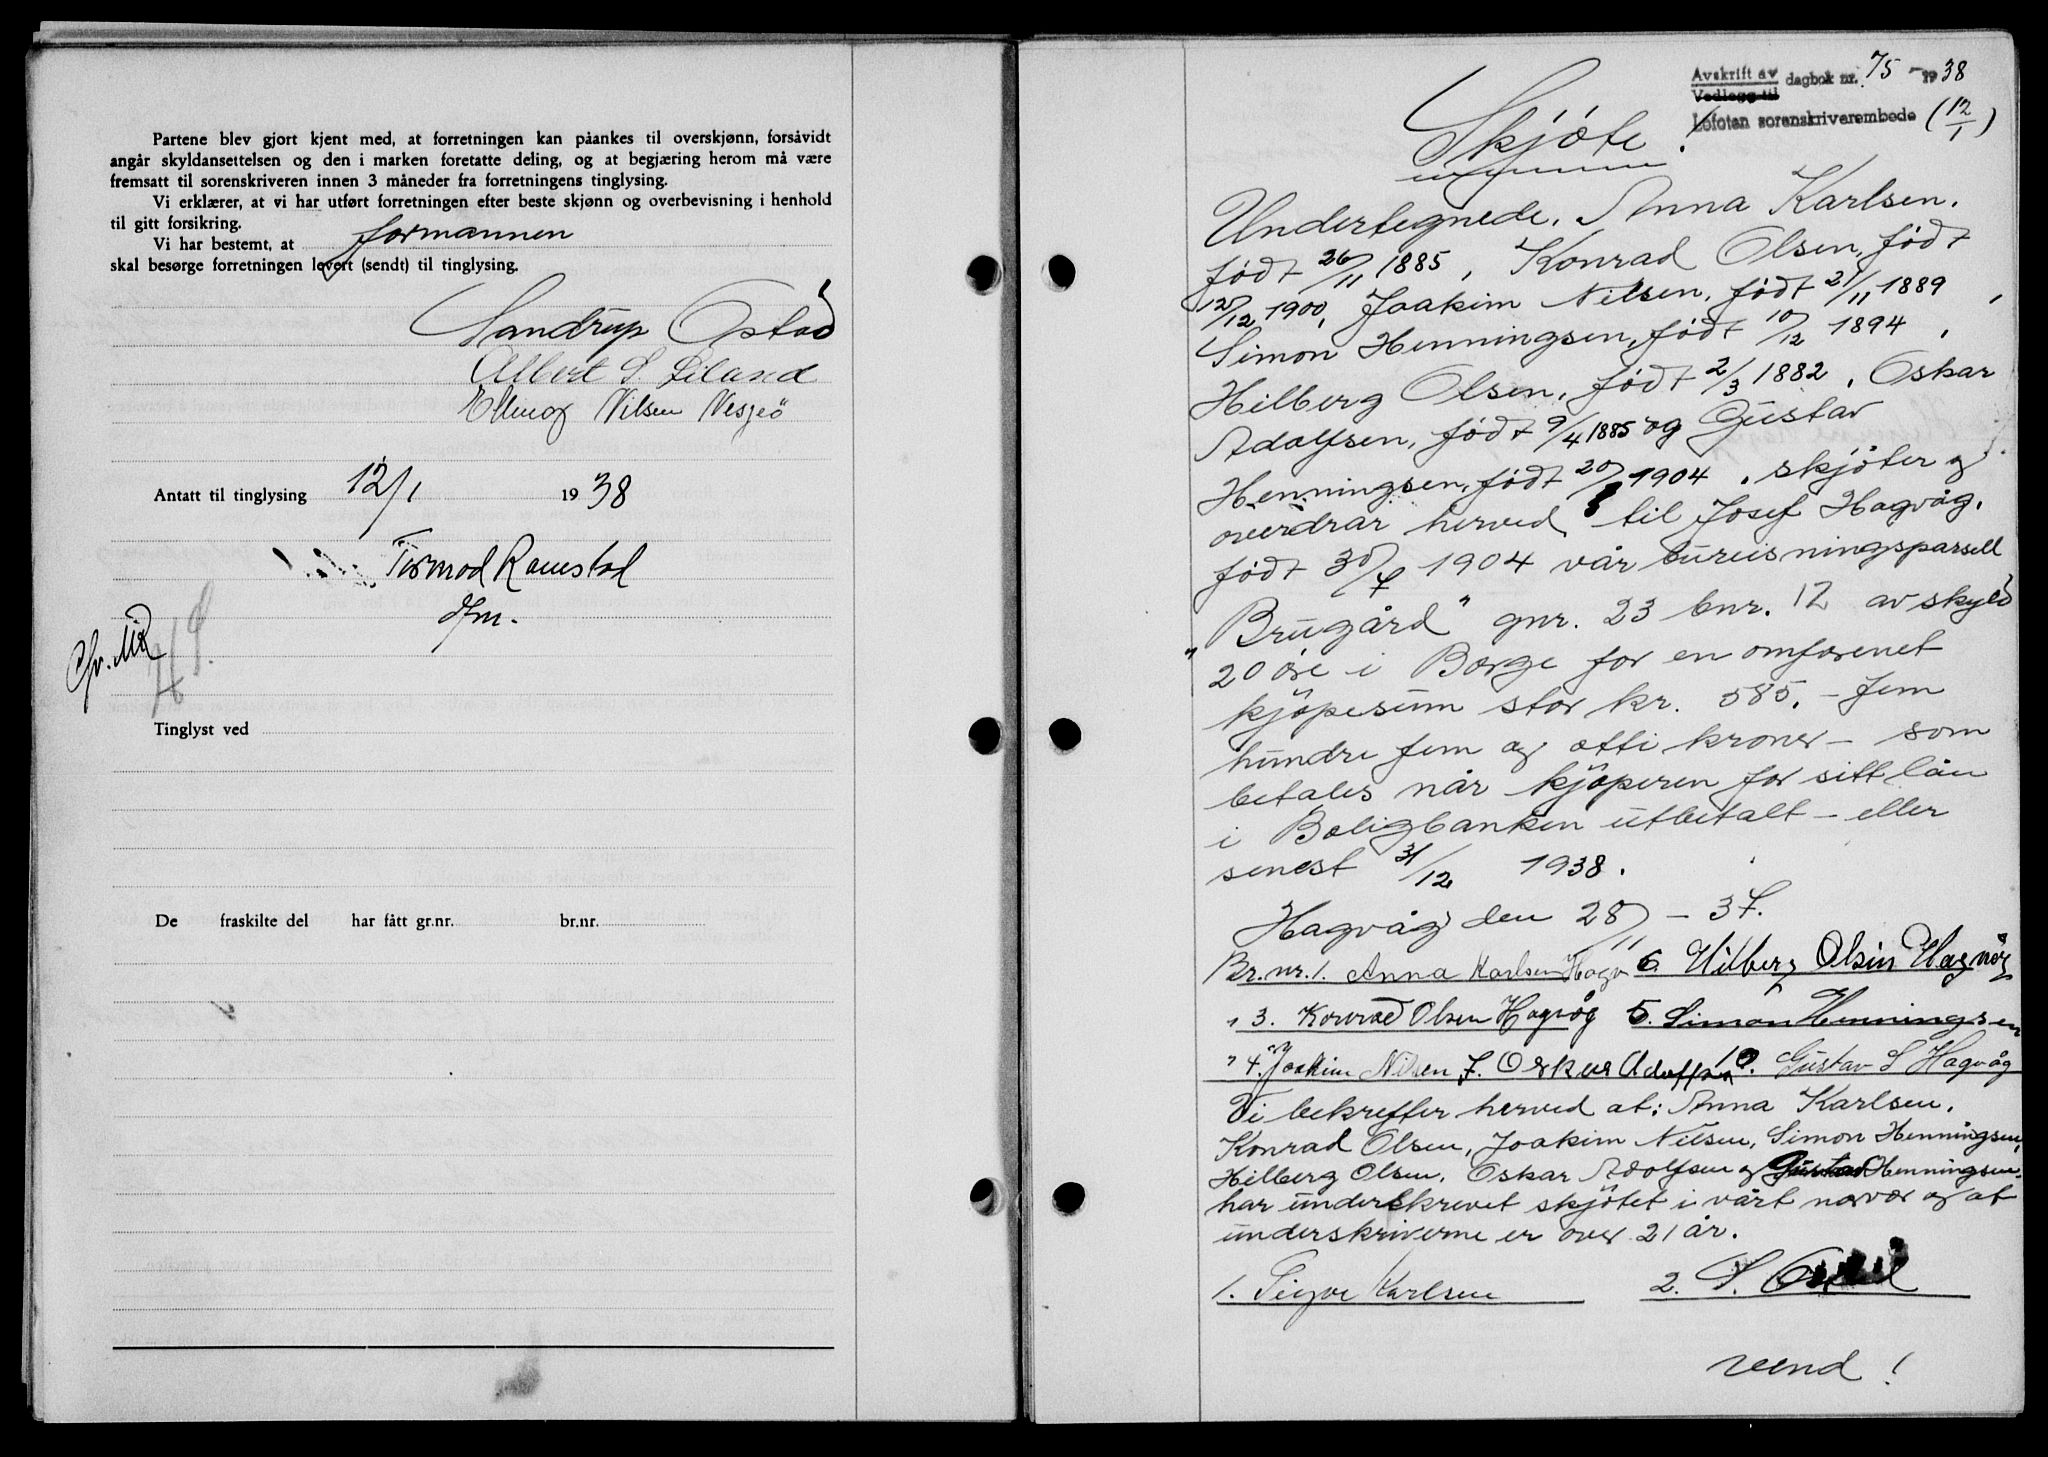 Partene blev gjort kjent med, at forretningen kan påankes til overskjønn, forsåvidt
angår skyldansettelsen og den i marken foretatte deling, og at begjæring herom må være
fremsatt til sorenskriveren innen 3 måneder fra forretningens tinglysing.
Vi erklærer, at vi har utført forretningen efter beste skjønn og overbevisning i henhold
til gitt forsikring.
Vi har bestemt, at formannen
skal besørge forretningen levert (sendt) til tinglysing.
Sandrup Opstad
Albert S. Leland
Ellinof Nilsen Vesjeö
Antatt til tinglysing 12/1 1938
Tormod Ramstad
dfm.
Tinglyst ved
De fraskilte del har fått gr.nr. br.nr.
Avskrift av dagbok nr. 75 - 1938
Vedlegg til
Lofoten sorenskriverembede (12/1)
Skjøte.
Undertegnede, Anna Karlsen,
født 26/11 1885, Konrad Olsen, født
12/12 1900, Joakim Nilsen, født 21/11 1889,
Simon Henningsen, født 10/12 1894,
Hilberg Olsen, født 2/3 1882, Oskar
Adolfsen, født 9/4 1885 og Gustav
Henningsen, født 20/1 1904, skjøter og
overdrar herved til Josef Hagvåg,
født 30/4 1904 vår bureisningsparsell
"Brugård" gnr. 23 bnr. 12 av skyld
20 øre i Borge for en omforenet
kjøpesum stor kr. 585,- fem
hundre fem og otti kroner - som
betales når kjøperen for sitt lån
i Boligbanken utbetalt - eller
senest 31/12 1938.
Hagvåg den 28/11 - 37.
Br.nr. 1. Anna Karlsen Hagv 6. Hilberg Olsin Hagvåg
" 3. Konrad Olsen Hagvåg 5. Simon Henningsen
" 4. Joakim Nilsen 7. Oskar Adolfsen 10. Gustav S Hagvåg
Vi bekrefter herved at: Anna Karlsen,
Konrad Olsen, Joakim Nilsen, Simon Henningsen,
Hilberg Olsen, Oskar Adolfsen og Gustav Henningsen
har underskrevet skjøtet i vårt nærvær og at
underskriverne er over 21 år.
1. Sigve Karlsen 2. S. Opstad
vend!